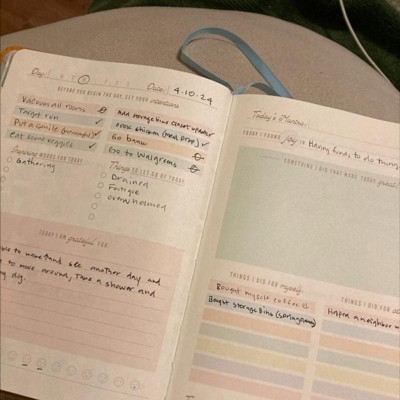 Day: M T W T F S S Date: 4-10-24
BEFORE YOU BEGIN THE DAY, SET YOUR intentions
Vacuum all rooms
Target run
Put a smile
eat some veggies
Add storage bins closet
cook chicken (meal prep)
Go bank
Go to Walgreens
Anything needs for today
Gathering
Things to let go of today
Drained
Fatigue
overwhelmed
TODAY I AM grateful FOR:
to move and see another day and
to move around, Take a shower and
my dog.
Today's Mantra:
TODAY I FOUND joy IN Having funds to do things
SOMETHING I DID THAT MADE TODAY great!
THINGS I DID FOR myself
Bought myself coffee
Bought storage Bins (springrung)
THINGS I DID FOR
Helped a neighbor